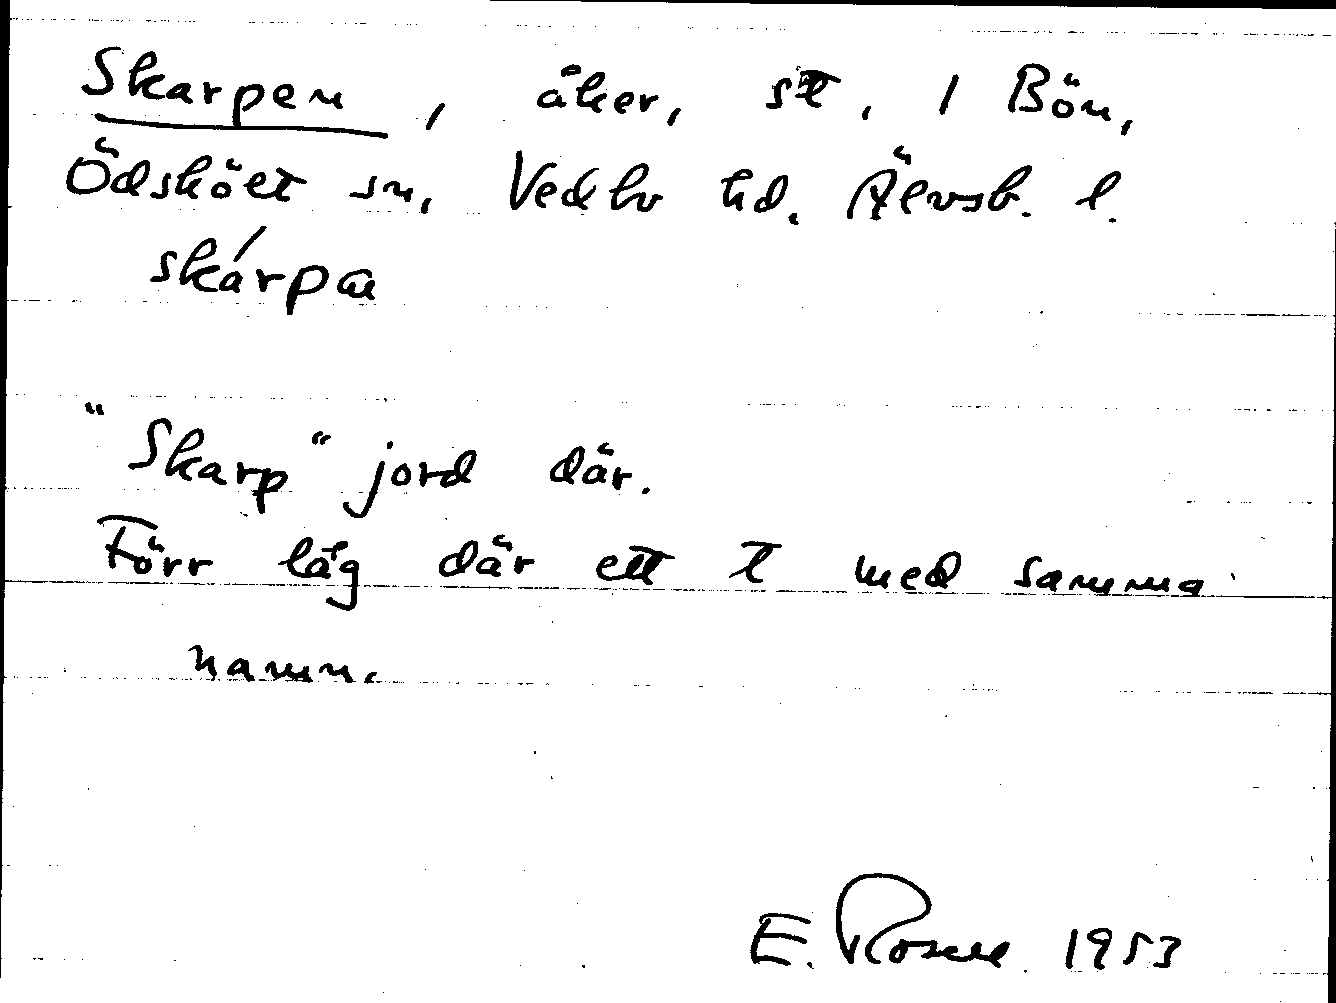 Skarpen, åker, st, 1 Bön,
Ödsköet sn, Vedbo hd. Älvsb. l.
skárpa
"Skarp" jord där.
Förr låg där ett t med samma
namn.
E. Rosell 1953